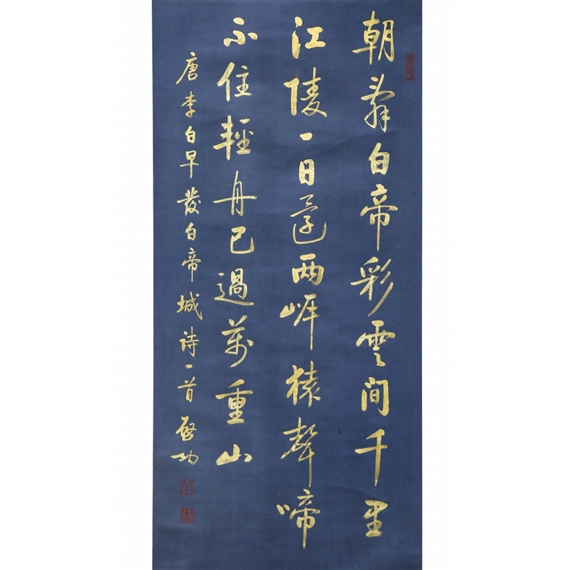 朝辭白帝彩雲間千里
江陵一日還兩岸猿聲啼
不住輕舟已過萬重山
唐李白早發白帝城詩一首 啓功